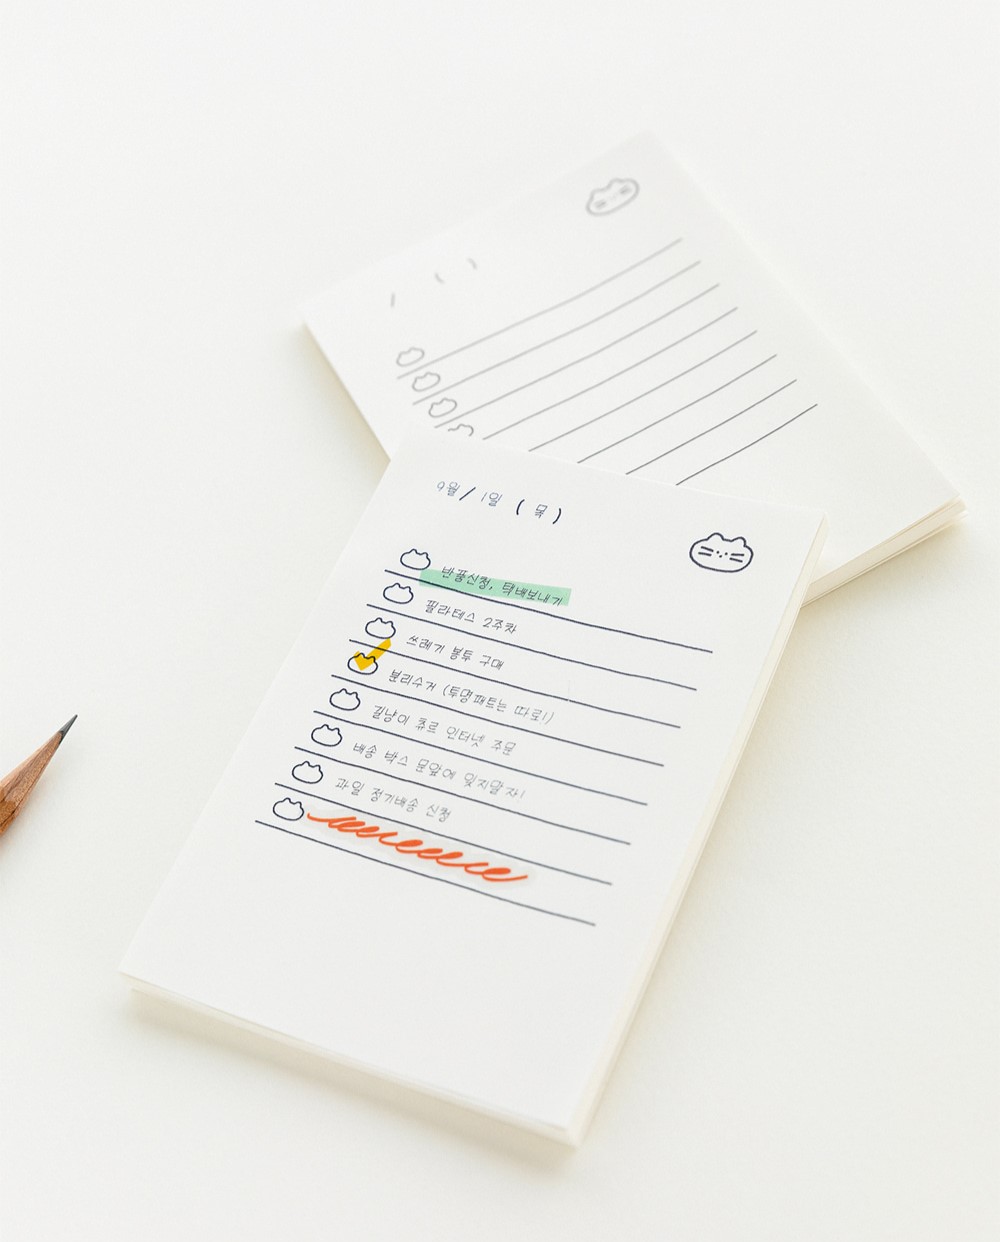 9월 / 1일 ( 목 )
반품신청, 택배보내기
필라테스 2주차
쓰레기 봉투 구매
분리수거 (투명패트는 따로!)
길냥이 츄르 인터넷 주문
배송 박스 문앞에 잊지말자!
과일 정기배송 신청